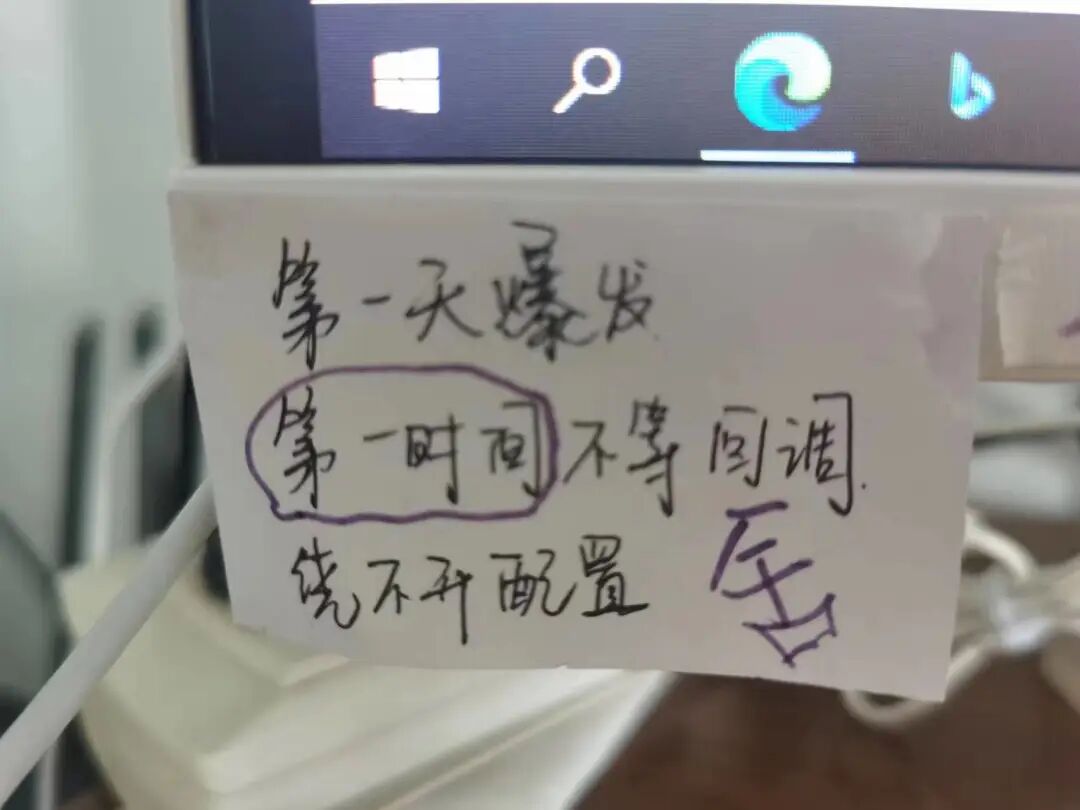 第一天爆发
第一时间不等回调
绕不开配置